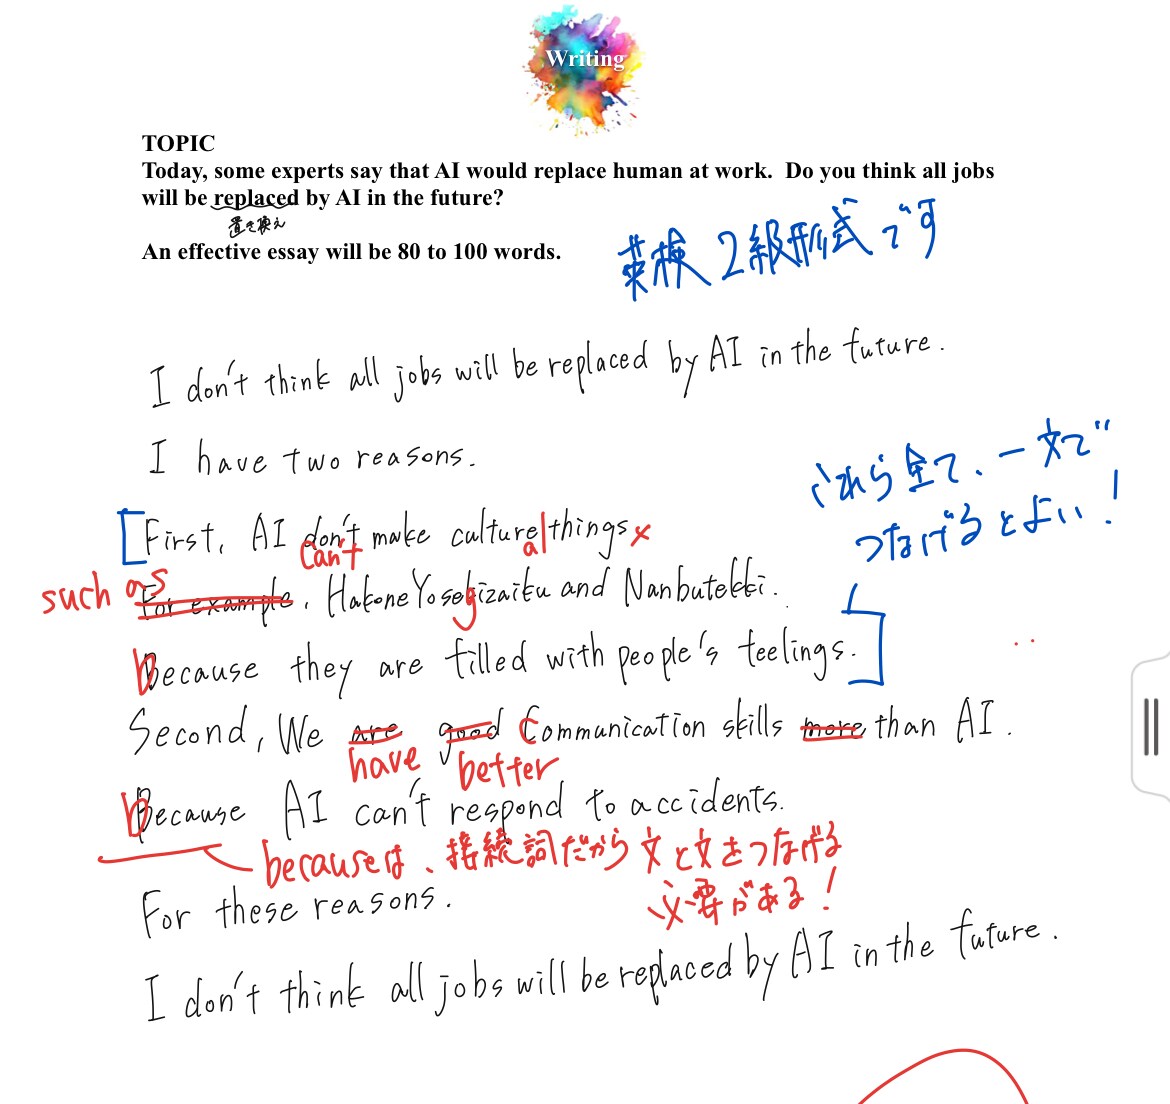 Writing
TOPIC
Today, some experts say that AI would replace human at work. Do you think all jobs
will be replaced by AI in the future?
置き換え
An effective essay will be 80 to 100 words.
英検2級形式です
I don't think all jobs will be replaced by AI in the future.
I have two reasons.
これら全て、一文で
つなげるとよい!
First, AI don't make culture things
can't al x
such as
For example, Hakone Yosegizaiku and Nanbutekki.
Because they are filled with people's feelings.
b
Second, We are good Communication skills more than AI.
have better c
Because AI can't respond to accidents.
b
becauseは、接続詞だから文と文をつなげる
必要がある!
For these reasons.
I don't think all jobs will be replaced by AI in the future.